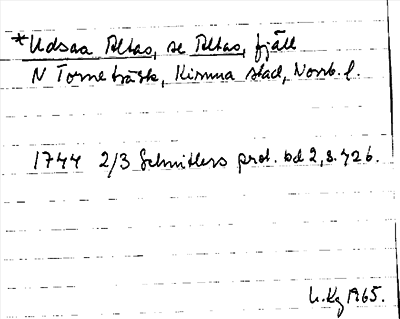 *Udsaa Altas, se Altas, fjäll
N Torneträsk, Kiruna stad, Norrb. l.
1744 2/3 Schnitlers prot. bd 2, s. 426.
1965.